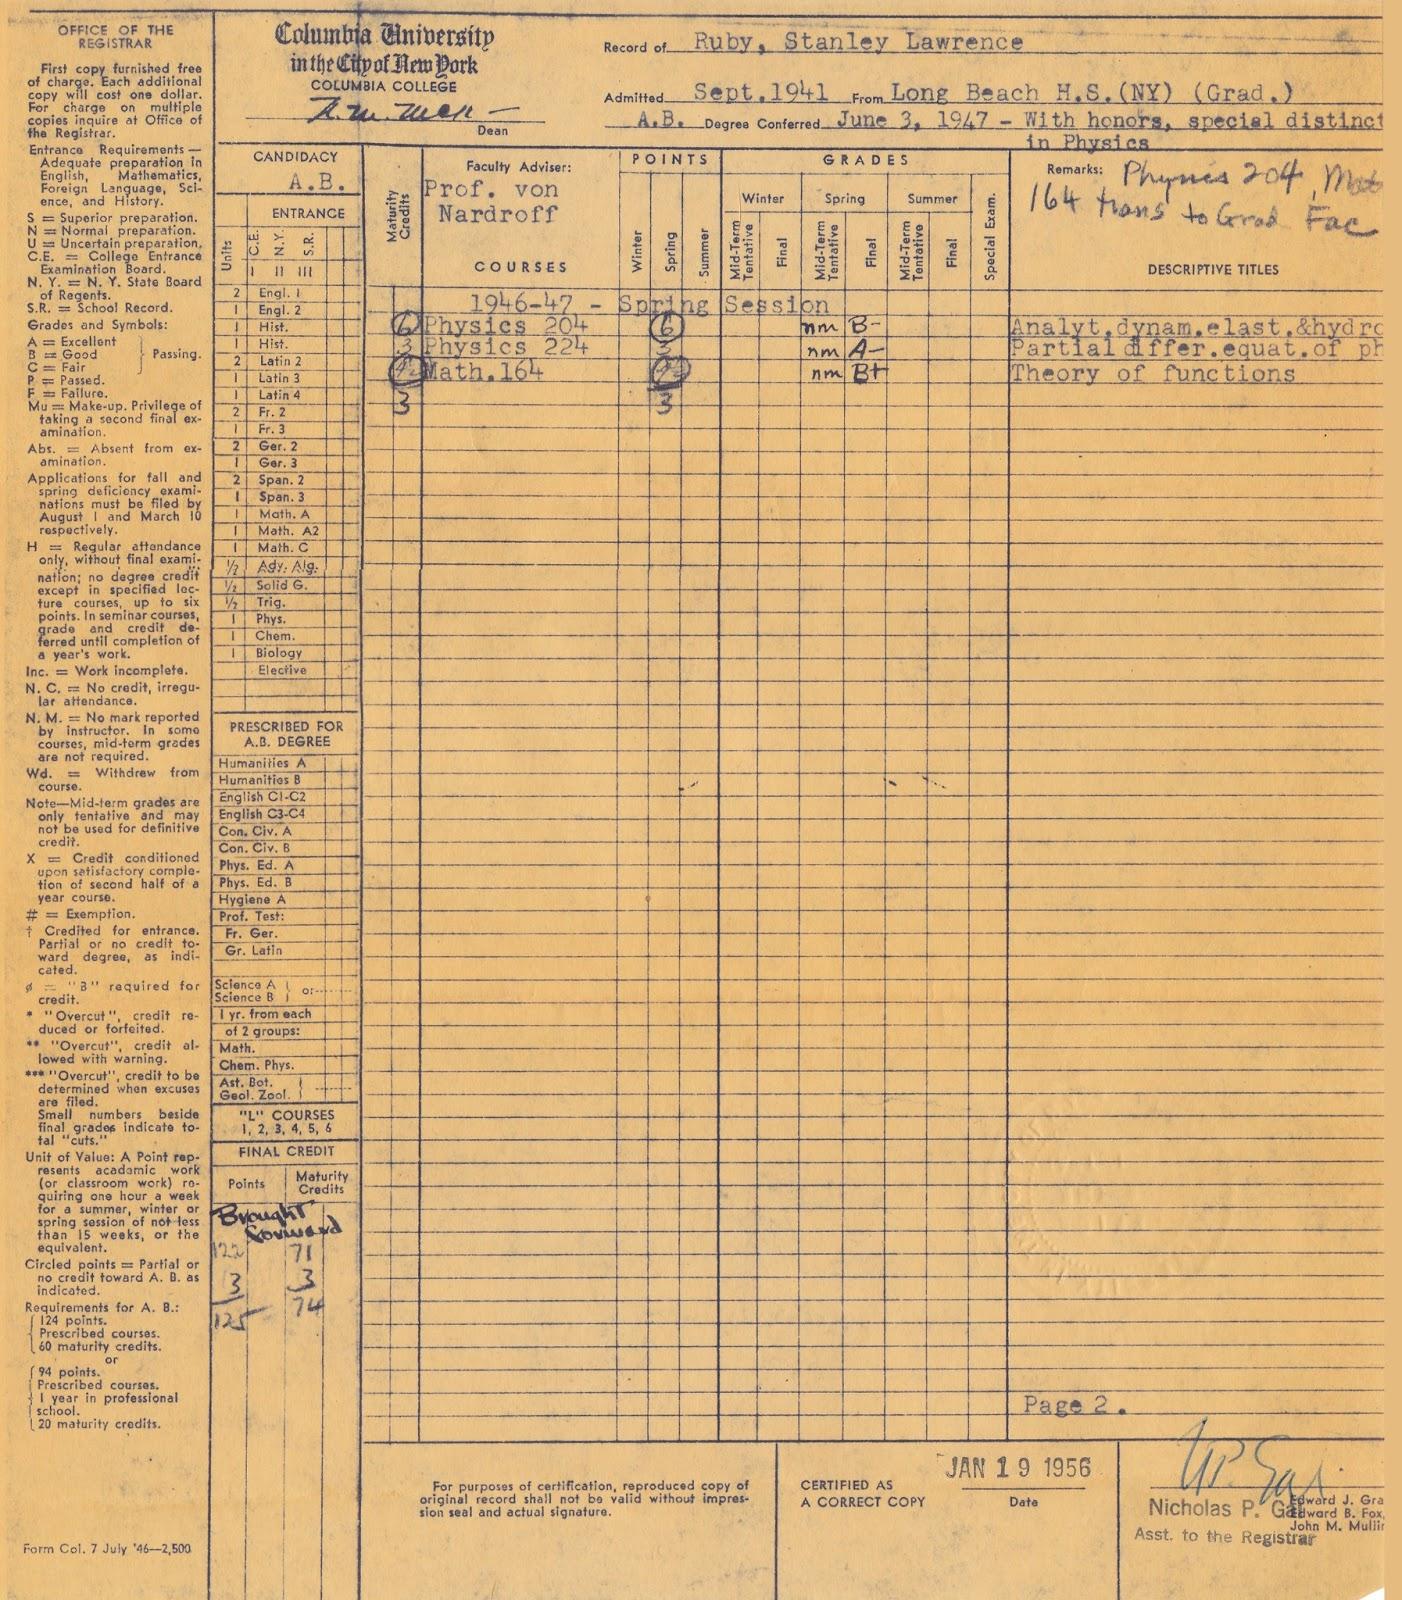 OFFICE OF THE
REGISTRAR
First copy furnished free
of charge. Each additional
copy will cost one dollar.
For charge on multiple
copies inquire at Office of
the Registrar.
Entrance Requirements—
Adequate preparation in
English, Mathematics,
Foreign Language, Sci-
ence, and History.
S = Superior preparation.
N = Normal preparation.
U = Uncertain preparation.
C.E. = College Entrance
Examination Board.
N. Y. = N. Y. State Board
of Regents.
S.R. = School Record.
Grades and Symbols:
A = Excellent
B = Good
C = Fair
Passing.
P = Passed.
F = Failure.
Mu = Make-up. Privilege of
taking a second final ex-
amination.
Abs. = Absent from ex-
amination.
Applications for fall and
spring deficiency exami-
nations must be filed by
August 1 and March 10
respectively.
H = Regular attendance
only, without final exami-
nation; no degree credit
except in specified lec-
ture courses, up to six
points. In seminar courses,
grade and credit de-
ferred until completion of
a year's work.
Inc. = Work incomplete.
N. C. = No credit, irregu-
lar attendance.
N. M. = No mark reported
by instructor. In some
courses, mid-term grades
are not required.
Wd. = Withdrew from
course.
Note—Mid-term grades are
only tentative and may
not be used for definitive
credit.
X = Credit conditioned
upon satisfactory comple-
tion of second half of a
year course.
# = Exemption.
† Credited for entrance.
Partial or no credit to-
ward degree, as indi-
cated.
ø = "B" required for
credit.
* "Overcut", credit re-
duced or forfeited.
** "Overcut", credit al-
lowed with warning.
*** "Overcut", credit to be
determined when excuses
are filed.
Small numbers beside
final grades indicate to-
tal "cuts."
Unit of Value: A Point rep-
resents academic work
(or classroom work) re-
quiring one hour a week
for a summer, winter or
spring session of not less
than 15 weeks, or the
equivalent.
Circled points = Partial or
no credit toward A. B. as
indicated.
Requirements for A. B.:
124 points.
Prescribed courses.
60 maturity credits.
or
94 points.
Prescribed courses.
1 year in professional
school.
20 maturity credits.
Form Col. 7 July '46—2,500
Columbia University
in the City of New York
COLUMBIA COLLEGE
Dean
Record of Ruby, Stanley Lawrence
Admitted Sept.1941 From Long Beach H.S.(NY) (Grad.)
A.B. Degree Conferred June 3, 1947 - With honors, special distinct
in Physics
CANDIDACY
A.B.
ENTRANCE
Units C.E. N.Y. S.R.
I II III
2 Engl. 1
1 Engl. 2
1 Hist.
1 Hist.
2 Latin 2
1 Latin 3
1 Latin 4
2 Fr. 2
1 Fr. 3
2 Ger. 2
1 Ger. 3
2 Span. 2
1 Span. 3
1 Math. A
1 Math. A2
1 Math. C
1/2 Adv. Alg.
1/2 Solid G.
1/2 Trig.
1 Phys.
1 Chem.
1 Biology
Elective
PRESCRIBED FOR
A.B. DEGREE
Humanities A
Humanities B
English C1-C2
English C3-C4
Con. Civ. A
Con. Civ. B
Phys. Ed. A
Phys. Ed. B
Hygiene A
Prof. Test:
Fr. Ger.
Gr. Latin
Science A
Science B or
1 yr. from each
of 2 groups:
Math.
Chem. Phys.
Ast. Bot.
Geol. Zool.
"L" COURSES
1, 2, 3, 4, 5, 6
FINAL CREDIT
Points Maturity
Credits
Brought
forward
122 71
3 3
125 74
Maturity
Credits
Faculty Adviser:
Prof. von
Nardroff
COURSES
POINTS
Winter Spring Summer
GRADES
Winter Spring Summer
Mid-Term
Tentative Final Mid-Term
Tentative Final Mid-Term
Tentative Final Special Exam.
Remarks: Physics 204, Mat
164 trans to Grad Fac
DESCRIPTIVE TITLES
1946-47 - Spring Session
6 Physics 204 6 nm B- Analyt.dynam.elast.&hydro
3 Physics 224 3 nm A- Partial differ.equat.of ph
Math.164 nm B+ Theory of functions
3 3
Page 2.
For purposes of certification, reproduced copy of
original record shall not be valid without impres-
sion seal and actual signature.
CERTIFIED AS
A CORRECT COPY
JAN 19 1956
Date
Nicholas P.
Asst. to the Registrar
Edward J. Gra
Edward B. Fox,
John M. Mullin